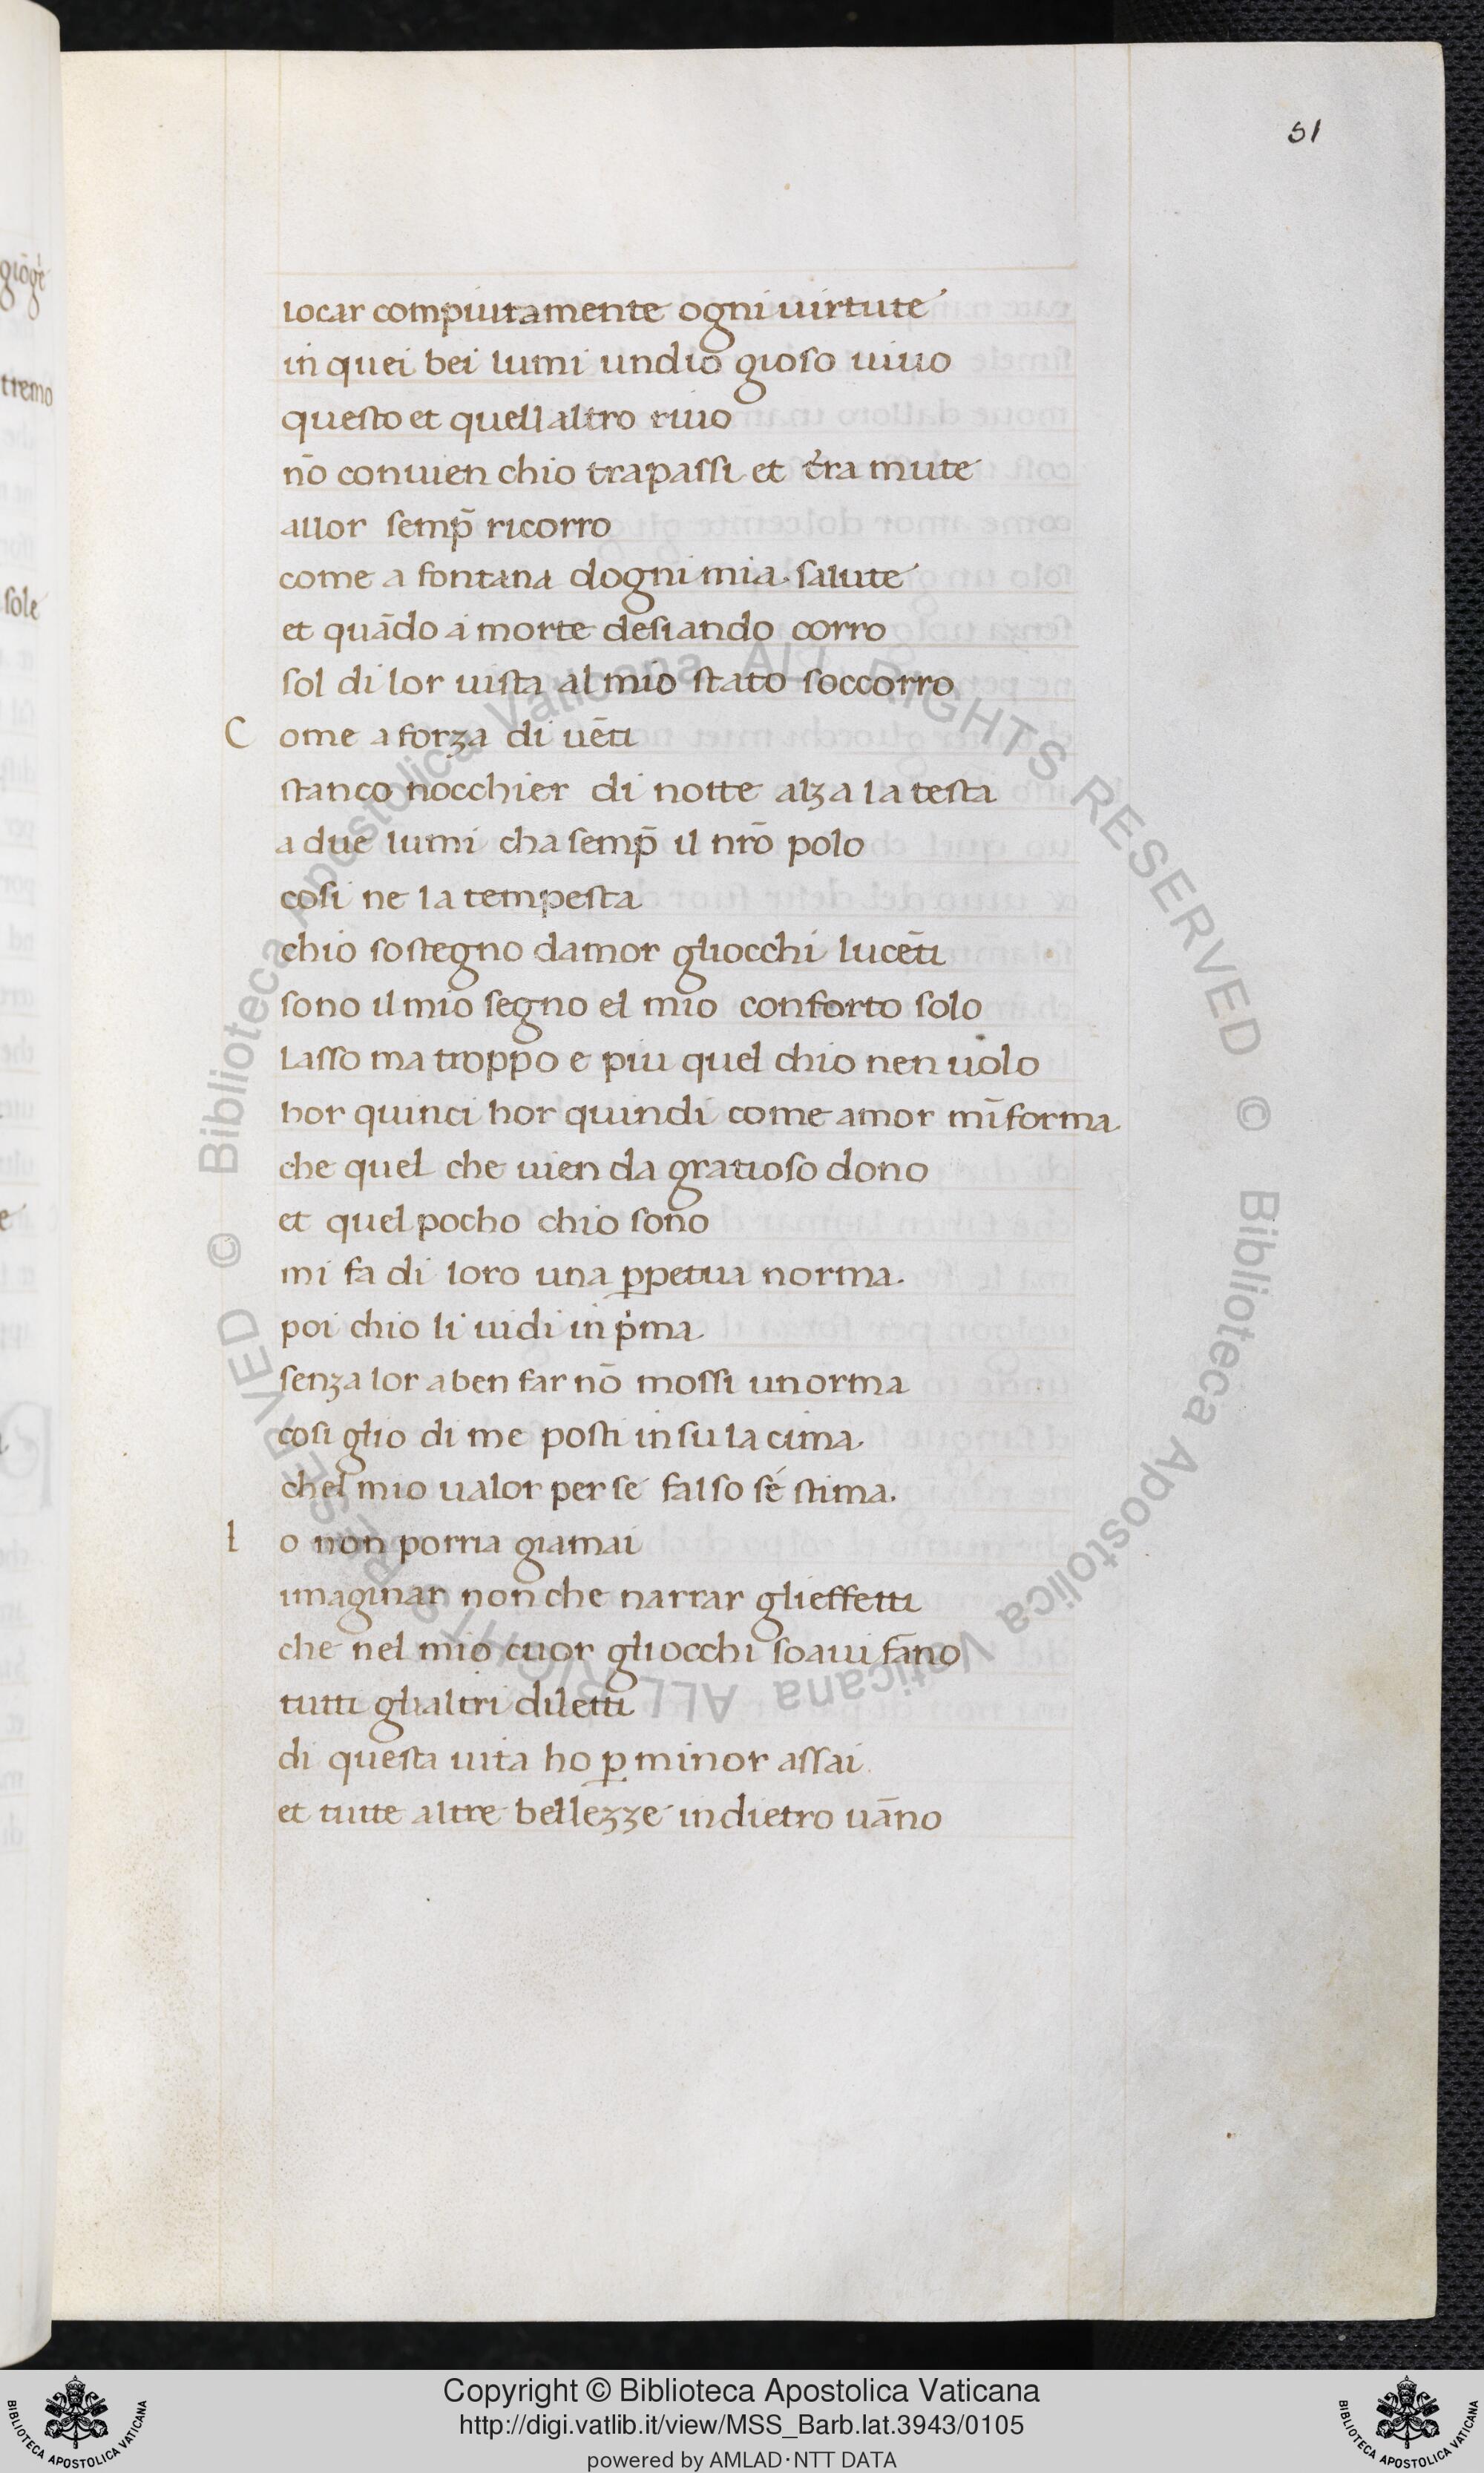 51
locar compiutamente ogni uirtute
in quei bei lumi undio gioso uiuo
questo et quell altro riuo
nō conuien chio trapassi et t̄ra mute
allor semp̄ ricorro
come a fontana dogni mia salute
et quādo a morte desiando corro
sol di lor uista al mio stato soccorro
C ome a forza di uēti
stanco nocchier di notte alza la testa
a due lumi cha semp̄ il nr̄o polo
cosi ne la tempesta
chio sostegno damor gliocchi lucēti
sono il mio segno el mio conforto solo
Lasso ma troppo e piu quel chio nen uolo
hor quinci hor quindi come amor mīforma
che quel che uien da gratioso dono
et quel pocho chio sono
mi fa di loro una ꝑpetua norma.
poi chio li uidi in pͥma
senza lor a ben far nō mossi unorma
cosi glio di me posti in su la cima
chel mio ualor per se falso se stima.
I o non porria giamai
imaginar non che narrar glieffetti
che nel mio cuor gliocchi soaui fāno
tutti glialtri diletti
di questa uita ho ꝑ minor assai
et tutte altre bellezze indietro uāno
giōgͤ
tremo
sole
Biblioteca Apostolica Vaticana ALL RIGHTS RESERVED ©
Biblioteca Apostolica Vaticana ALL RIGHTS RESERVED ©
Copyright © Biblioteca Apostolica Vaticana
http://digi.vatlib.it/view/MSS_Barb.lat.3943/0105
powered by AMLAD·NTT DATA
BIBLIOTECA APOSTOLICA VATICANA
BIBLIOTECA APOSTOLICA VATICANA